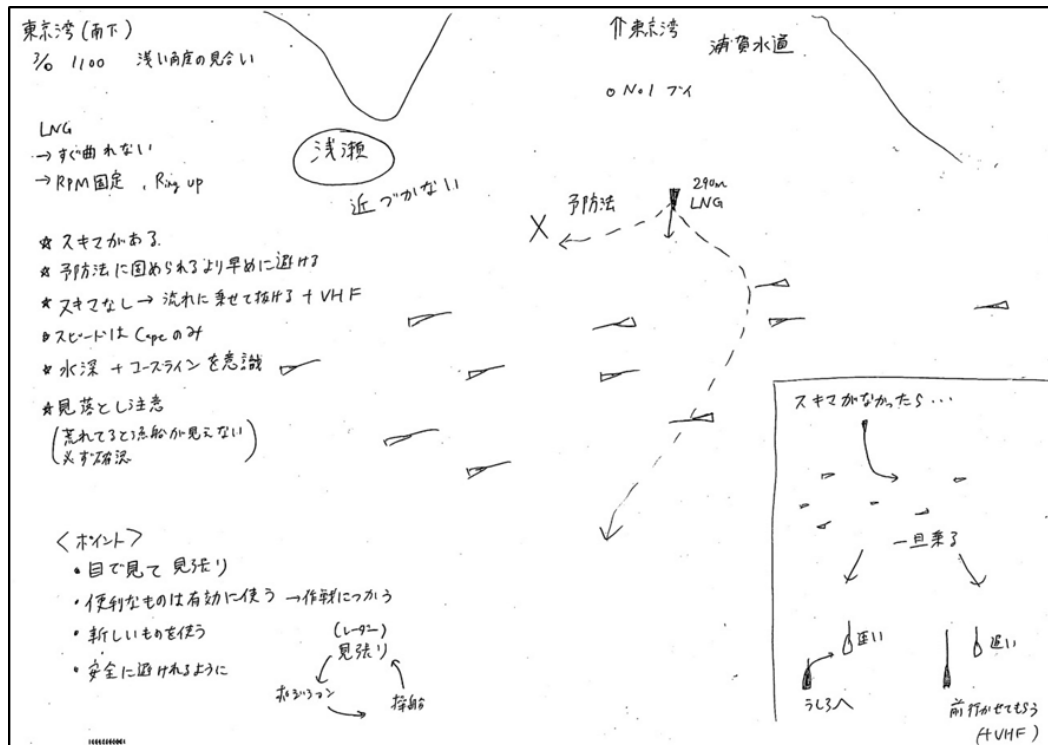 東京湾(南下)
3/0 1100 浅い角度の見合い
LNG
→すぐ曲れない
→RPM固定, Ring up
浅瀬
近づかない
⇑東京湾
浦賀水道
o No1 ブイ
290m
LNG
予防法
X
☆スキマがある
☆予防法に固められるより早めに避ける
☆スキマなし→流れに乗せて抜ける+VHF
☆スピードは Cape のみ
☆水深+コースラインを意識
☆見落とし注意
(荒れてると漁船が見えない
必ず確認)
<ポイント>
・目で見て見張り
・便利なものは有効に使う→作戦につかう
・新しいものを使う
・安全に避けれるように
(レーダー)
見張り
ポジション
操船
スキマがなかったら...
一旦乗る
遅い
うしろへ
追い
前行かせてもらう
(+VHF)